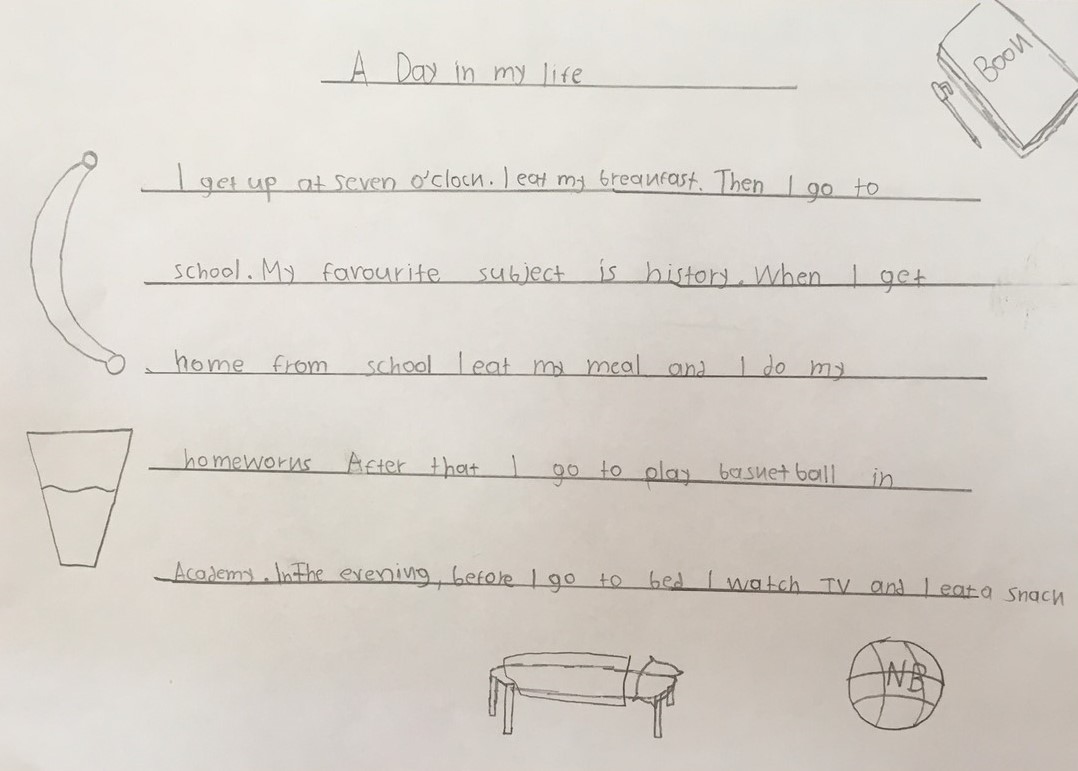 Book
A Day in my life
I get up at seven o'clock. I eat my breakfast. Then I go to
school. My favourite subject is history. When I get
home from school I eat my meal and I do my
homeworks After that I go to play basketball in
Academy. In The evening, before I go to bed I watch TV and I eat a snack
NB